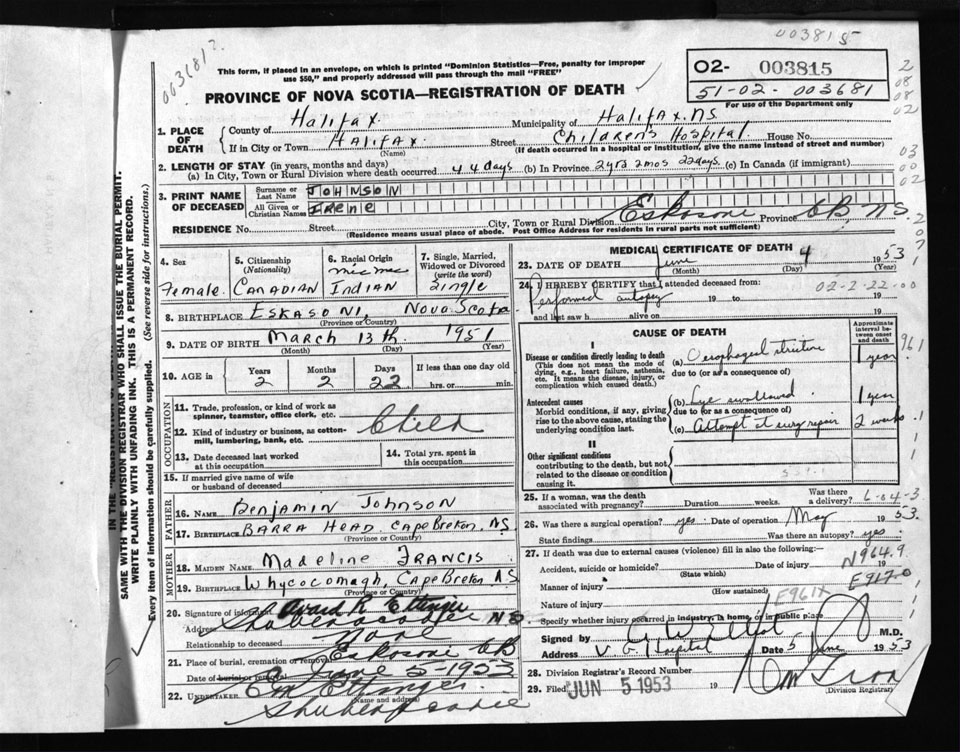 003815
003681?
This form, if placed in an envelope, on which is printed "Dominion Statistics—Free, penalty for improper
use $50," and properly addressed will pass through the mail "FREE"
02- 003815
51-02-003681
For use of the Department only
PROVINCE OF NOVA SCOTIA—REGISTRATION OF DEATH
1. PLACE OF DEATH
County of Halifax. Municipality of Halifax. N.S.
If in City or Town Halifax. Street Children's Hospital. House No.
(Name) (If death occurred in a hospital or institution, give the name instead of street and number)
2. LENGTH OF STAY (in years, months and days)
(a) In City, Town or Rural Division where death occurred 44 days (b) In Province 2 yrs 2 mos 22 days (c) In Canada (if immigrant)
3. PRINT NAME OF DECEASED
Surname or Last Name JOHNSON
All Given or Christian Names IRENE
RESIDENCE No. Street City, Town or Rural Division Eskosoni Province CB NS
(Residence means usual place of abode. Post Office Address for residents in rural parts not sufficient)
4. Sex Female
5. Citizenship (Nationality) CANADIAN
6. Racial Origin micmac INDIAN
7. Single, Married, Widowed or Divorced (write the word) Single
8. BIRTHPLACE ESKASONI, Nova Scotia
(Province or Country)
9. DATE OF BIRTH March 13th. 1951
(Month) (Day) (Year)
10. AGE in Years 2 Months 2 Days 22 If less than one day old hrs. or min.
OCCUPATION
11. Trade, profession, or kind of work as spinner, teamster, office clerk, etc.
Child
12. Kind of industry or business, as cotton-mill, lumbering, bank, etc.
13. Date deceased last worked at this occupation
14. Total yrs. spent in this occupation
15. If married give name of wife or husband of deceased
FATHER
16. NAME Benjamin Johnson
17. BIRTHPLACE BARRA HEAD. CAPE Breton. NS
(Province or Country)
MOTHER
18. MAIDEN NAME Madeline FRANCIS
19. BIRTHPLACE Whycocomagh, CAPE Breton NS
(Province or Country)
20. Signature of informant Avard K Ettinger
Address Shubenacadie N.S.
Relationship to deceased None
21. Place of burial, cremation or removal Eskosoni CB
Date of burial or removal June 5-1953
22. UNDERTAKER EM Ettinger
(Name and address)
Shubenacadie
MEDICAL CERTIFICATE OF DEATH
23. DATE OF DEATH June 4 1953
(Month) (Day) (Year)
24. I HEREBY CERTIFY that I attended deceased from:
Performed autopsy 19 to 19
02-2-22-00
and last saw h alive on 19
CAUSE OF DEATH
Approximate interval between onset and death
I
Disease or condition directly leading to death
(This does not mean the mode of dying, e.g., heart failure, asthenia, etc. It means the disease, injury, or complication which caused death.)
(a) Oesophageal stricture 1 year
due to (or as a consequence of)
Antecedent causes
Morbid conditions, if any, giving rise to the above cause, stating the underlying condition last.
(b) Lye swallowed 1 year
due to (or as a consequence of)
(c) Attempt at surg repair 2 weeks
II
Other significant conditions
contributing to the death, but not related to the disease or condition causing it.
25. If a woman, was the death associated with pregnancy? Duration weeks. Was there a delivery?
6-04-3
26. Was there a surgical operation? yes. Date of operation May 1953.
State findings Was there an autopsy? yes.
27. If death was due to external causes (violence) fill in also the following:—
Accident, suicide or homicide? Date of injury 19
(State which)
N964.9
Manner of injury
(How sustained)
E917.0
Nature of injury
E961X
Specify whether injury occurred in industry, in home, or in public place
Signed by M.D.
Address V G Hospital Date 5 June 1953
28. Division Registrar's Record Number
29. Filed JUN 5 1953 19
(Division Registrar)
SAME WITH THE DIVISION REGISTRAR WHO SHALL ISSUE THE BURIAL PERMIT.
WRITE PLAINLY WITH UNFADING INK. THIS IS A PERMANENT RECORD.
Every item of information should be carefully supplied. (See reverse side for instructions.)